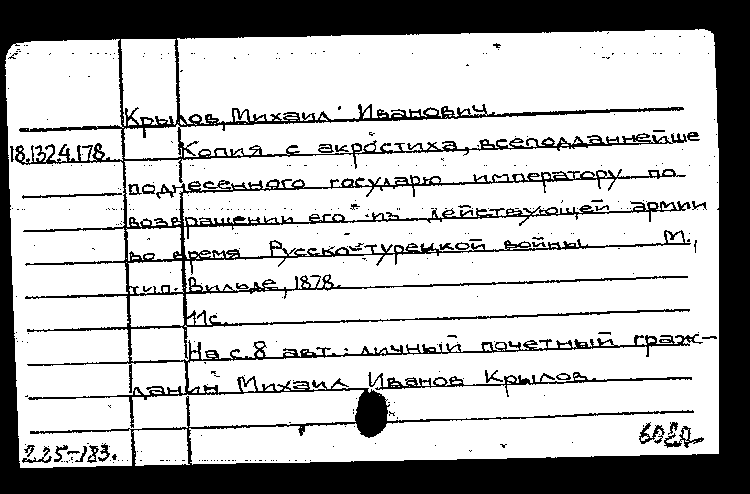 Крылов, Михаил Иванович.
18.1324.178. Копия с акростиха, всеподданнейше
поднесенного государю императору по
возвращении его из действующей армии
во время Русско-турецкой войны. М.,
тип. Вильде, 1878.
11с.
На с. 8 авт.: личный почетный граж-
данин Михаил Иванов Крылов.
225-183.